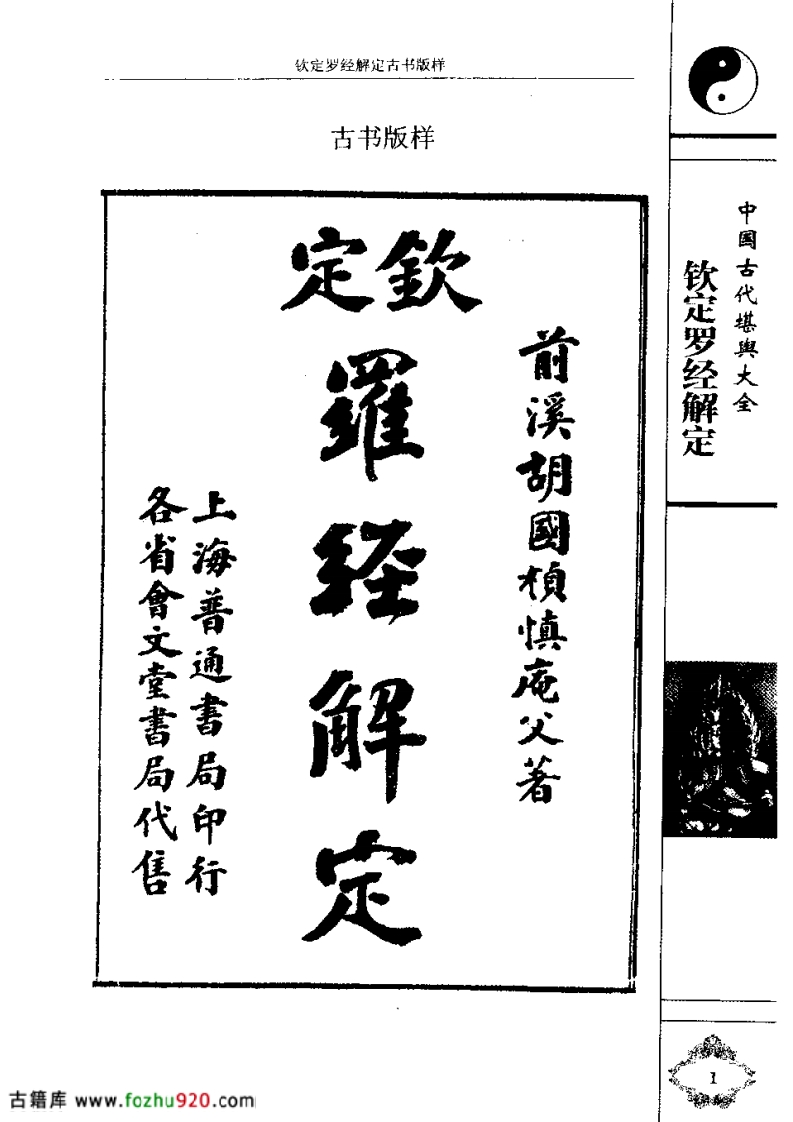 钦定罗经解定古书版样
古书版样
欽定
羅經解定
前溪胡國楨慎庵父著
上海普通書局印行
各省會文堂書局代售
中国古代堪舆大全
钦定罗经解定
1
古籍库 www.fozhu920.com